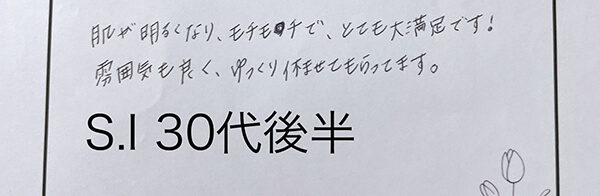 肌が明るくなり、モチモチで、とても大満足です!
雰囲気も良く、ゆっくり休ませてもらってます。
S.I 30代後半